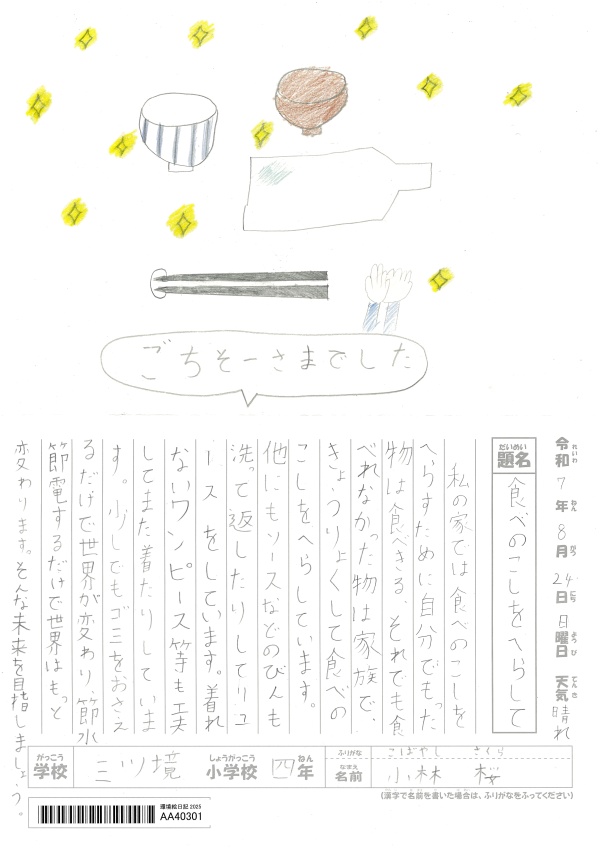 ごちそーさまでした
令和7年8月24日日曜日 天気晴れ
れいわ ねん がつ にち ようび てんき
だいめい
題名 食べのこしをへらして
私の家では食べのこしを
へらすために自分でもった
物は食べきる、それでも食
べれなかった物は家族で、
きょうりょくして食べの
こしをへらしています。
他にもソースなどのびんも
洗って返したりしてリユ
ースをしています。着れ
ないワンピース等も工夫
してまた着たりしていま
す。少しでもゴミをおさえ
るだけで世界が変わり、節水
節電するだけで世界はもっと
変わります。そんな未来を目指しましょう。
がっこう しょうがっこう ねん
学校 三ツ境 小学校 四年
ふりがな こばやし さくら
なまえ
名前 小林 桜
(漢字で名前を書いた場合は、ふりがなをふってください)
環境絵日記 2025
AA40301